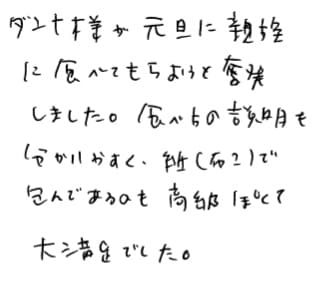 ダンナ様が元旦に親族
に食べてもらおうと奮発
しました。食べ方の説明も
分かりやすく、紙(布?)で
包んであるのも高級ぽくて
大満足でした。